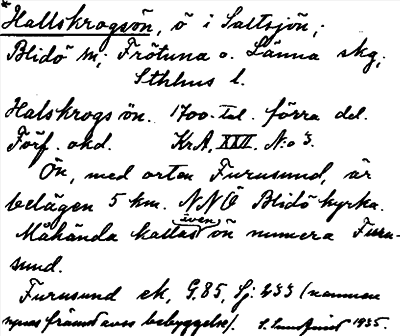 *Hallskrogsön, ö i Saltsjön;
Blidö sn; Frötuna o. Länna skg;
Sthlms l.
Halskrogs ön. 1700-tal. förra del.
Förf. okd. KrA, XXII. N:o 3.
Ön, med orten Furusund, är
belägen 5 km. NNÖ Blidö kyrka.
Måhända kallas även ön numera Furu-
sund.
Furusund ek, G.85, Sj: 433 (namnen
upprepas främst avse bebyggelse). 1935.